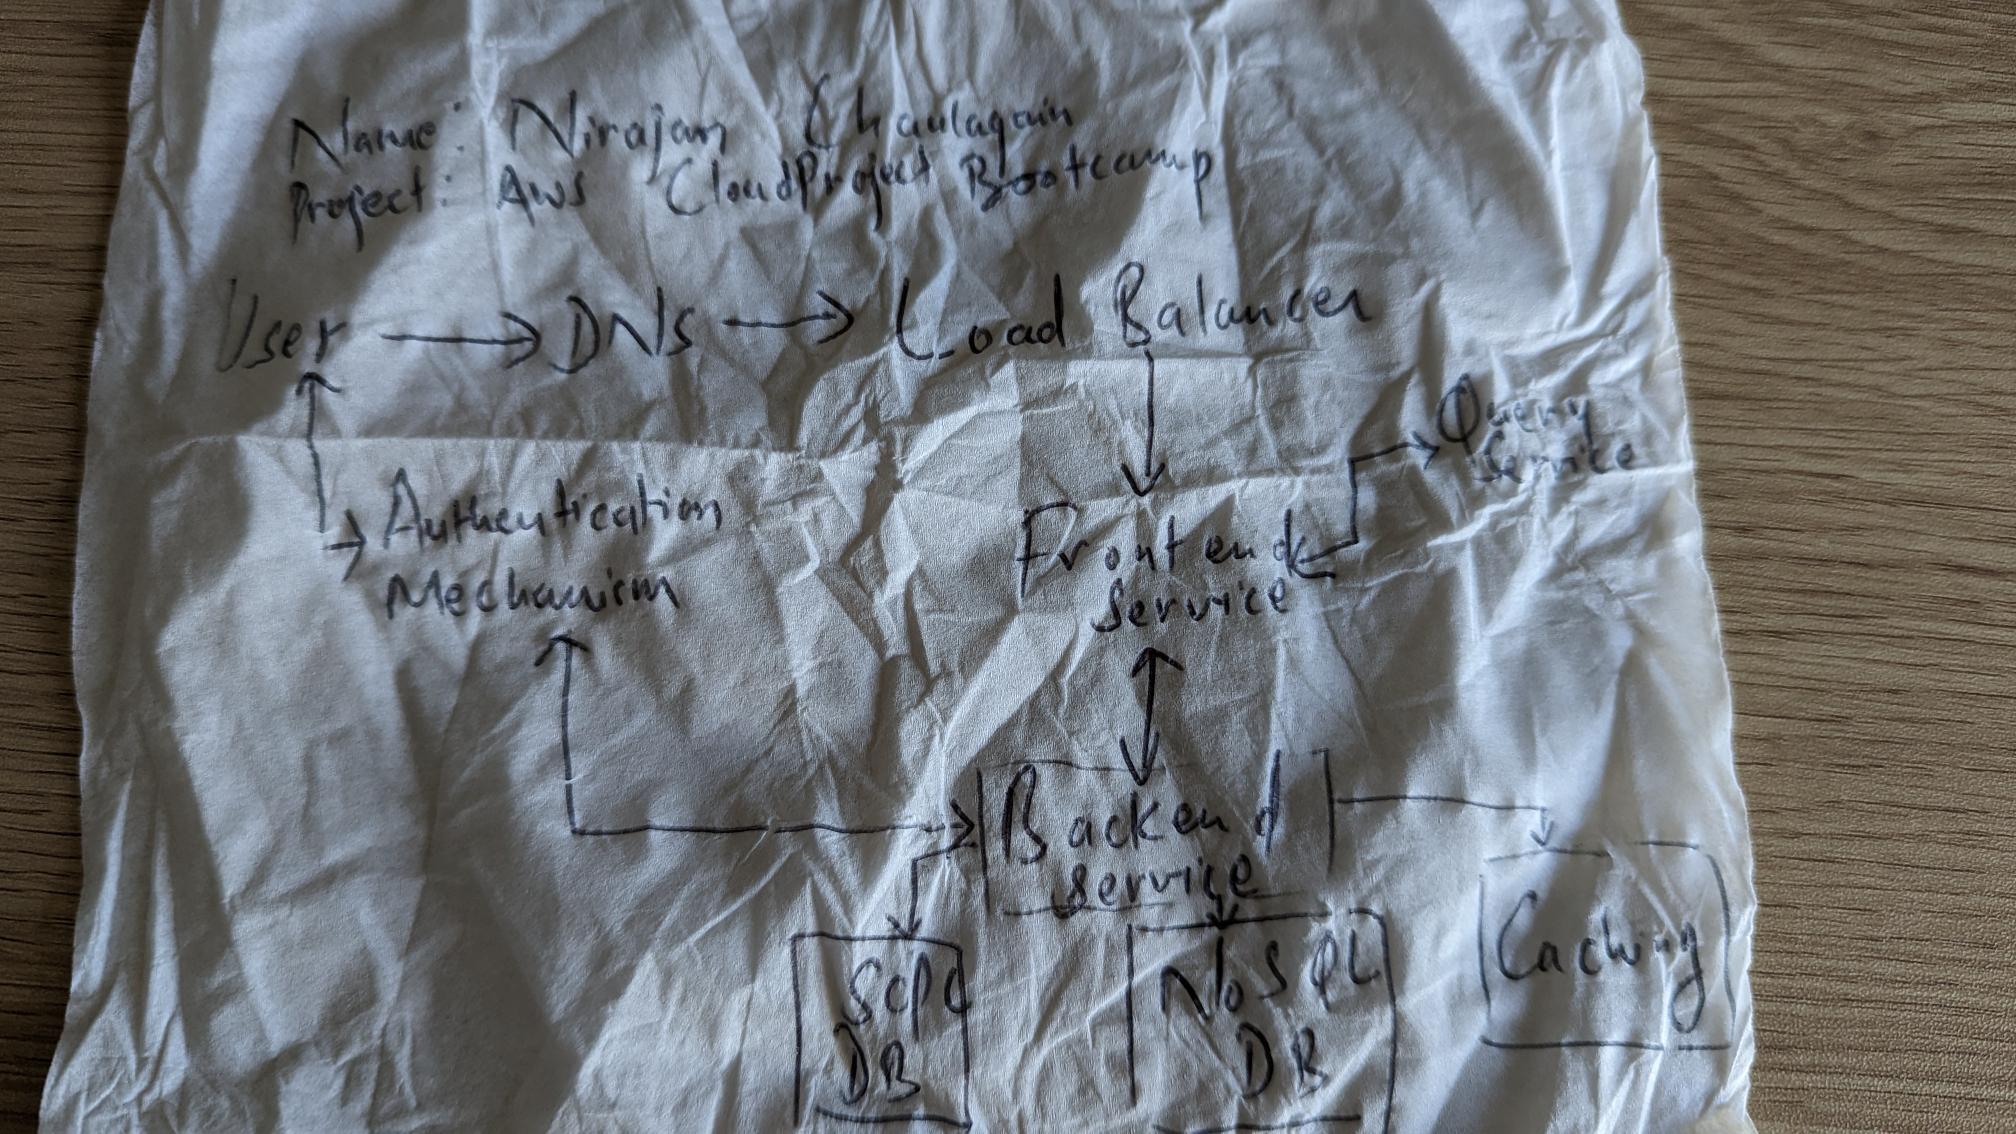 Name: Nirajan Chaulagain
Project: Aws CloudProject Bootcamp
User → DNS → Load Balancer
Query
Service
Authentication
Mechanism
Frontend
Service
Backend
Service
SQL
DB
NoSQL
DB
Caching